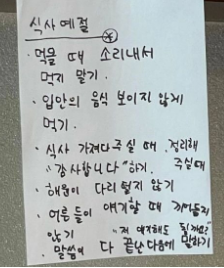 식사 예절
· 먹을 때 소리내서
먹지 말기.
· 입안의 음식 보이지 않게
먹기.
· 식사 가져다 주실 때 정리해
"감사합니다" 하기. 주실때
· 해원이 다리 털지 않기
· 어른들이 얘기할 때 끼어들지
않기 "저 얘기해도 될까요?"
· 말씀이 다 끝난다음에 말하기